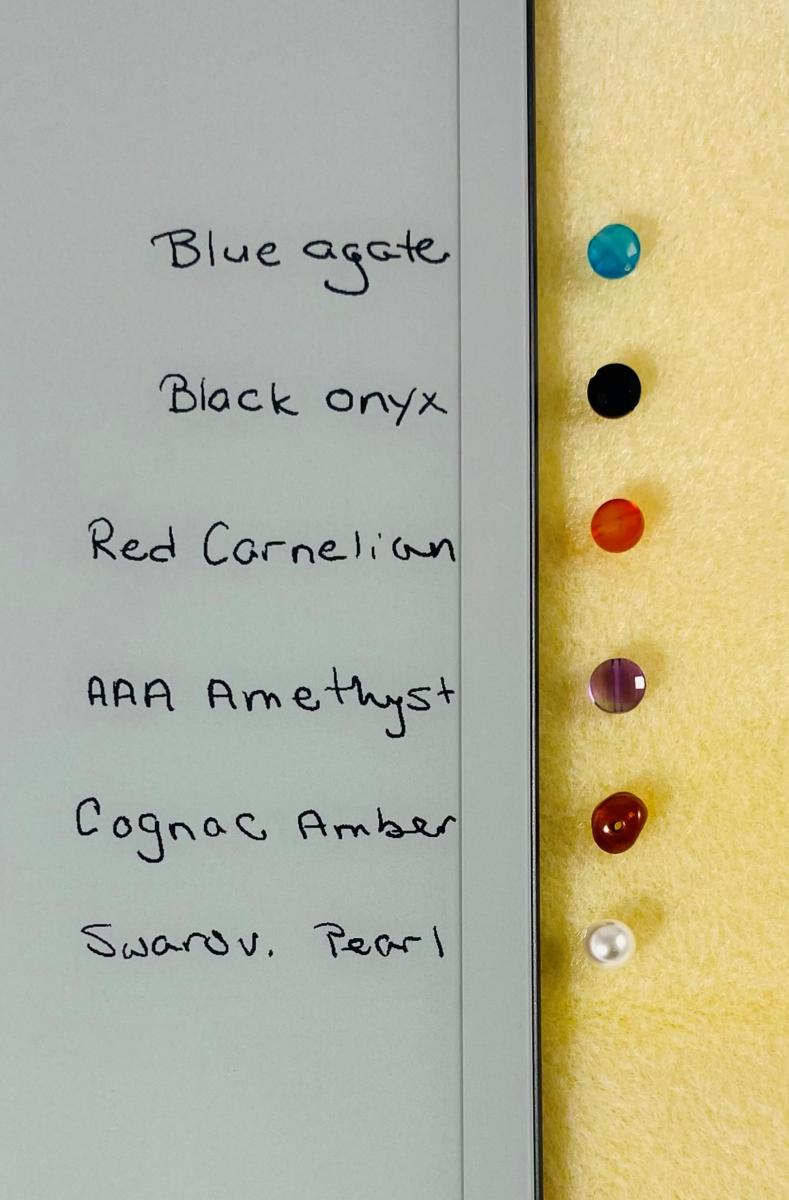 Blue agate
Black onyx
Red Carnelian
AAA Amethyst
Cognac Amber
Swarov. Pearl